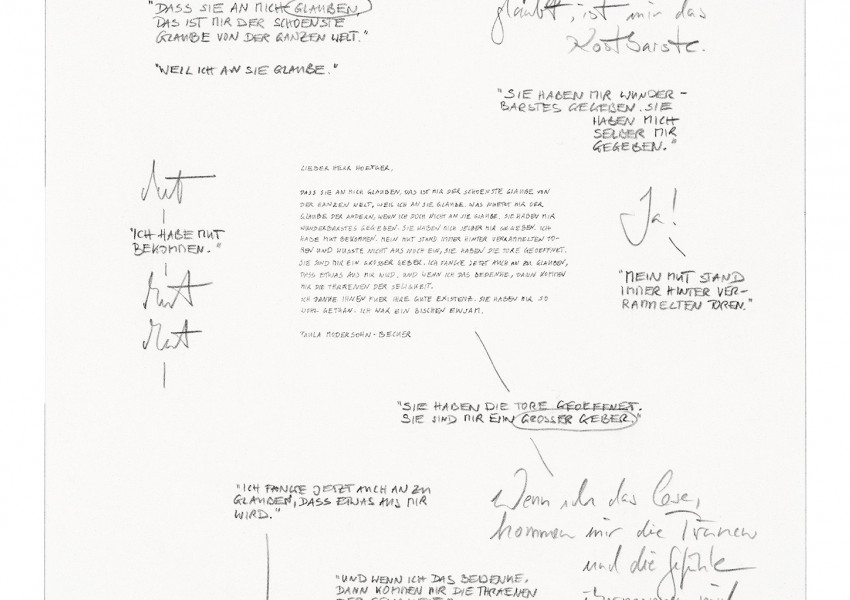 "DASS SIE AN MICH GLAUBEN,
DAS IST MIR DER SCHOENSTE
GLAUBE VON DER GANZEN WELT."
"WEIL ICH AN SIE GLAUBE."
glaubt, ist mir das
Kostbarste.
"SIE HABEN MIR WUNDER-
BARSTES GEGEBEN. SIE
HABEN MICH
SELBER MIR
GEGEBEN."
Mut
"ICH HABE MUT
BEKOMMEN."
Mut
Mut
LIEBER HERR HOETGER,
DASS SIE AN MICH GLAUBEN, DAS IST MIR DER SCHOENSTE GLAUBE VON
DER GANZEN WELT, WEIL ICH AN SIE GLAUBE. WAS NUETZT MIR DER
GLAUBE DER ANDERN, WENN ICH DOCH NICHT AN SIE GLAUBE. SIE HABEN MIR
WUNDERBARSTES GEGEBEN. SIE HABEN MICH SELBER MIR GEGEBEN. ICH
HABE MUT BEKOMMEN. MEIN MUT STAND IMMER HINTER VERRAMMELTEN TO-
REN UND WUSSTE NICHT AUS NOCH EIN. SIE HABEN DIE TORE GEOEFFNET.
SIE SIND MIR EIN GROSSER GEBER. ICH FANGE JETZT AUCH AN ZU GLAUBEN,
DASS ETWAS AUS MIR WIRD. UND WENN ICH DAS BEDENKE, DANN KOMMEN
MIR DIE THRAENEN DER SELIGKEIT.
ICH DANKE IHNEN FUER IHRE GUTE EXISTENZ. SIE HABEN MIR SO
WOHL GETHAN. ICH WAR EIN BISCHEN EINSAM.
PAULA MODERSOHN-BECKER
Ja!
"MEIN MUT STAND
IMMER HINTER VER-
RAMMELTEN TOREN."
"SIE HABEN DIE TORE GEOEFFNET.
SIE SIND MIR EIN GROSSER GEBER."
"ICH FANGE JETZT AUCH AN ZU
GLAUBEN, DASS ETWAS AUS MIR
WIRD."
Wenn ich das lese,
kommen mir die Tränen
und die Gefühle
"UND WENN ICH DAS BEDENKE,
DANN KOMMEN MIR DIE THRAENEN